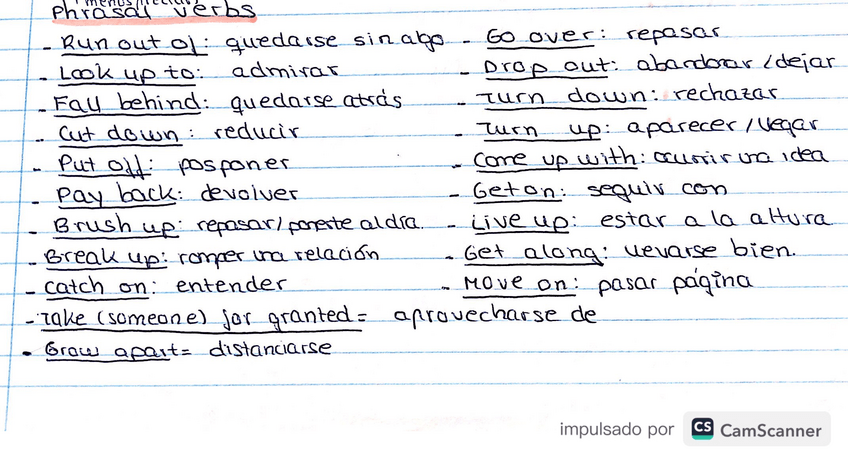 Phrasal verbs
- Run out of: quedarse sin algo
- Look up to: admirar
- Fall behind: quedarse atrás
- Cut down: reducir
- Put off: posponer
- Pay back: devolver
- Brush up: repasar/ponerte al día.
- Break up: romper una relación
- Catch on: entender
- Take (someone) for granted= aprovecharse de
- Grow apart= distanciarse
- Go over: repasar
- Drop out: abandonar/dejar
- Turn down: rechazar
- Turn up: aparecer/llegar
- Come up with: ocurrir una idea
- Get on: seguir con
- Live up: estar a la altura
- Get along: llevarse bien.
- Move on: pasar página
impulsado por CS CamScanner